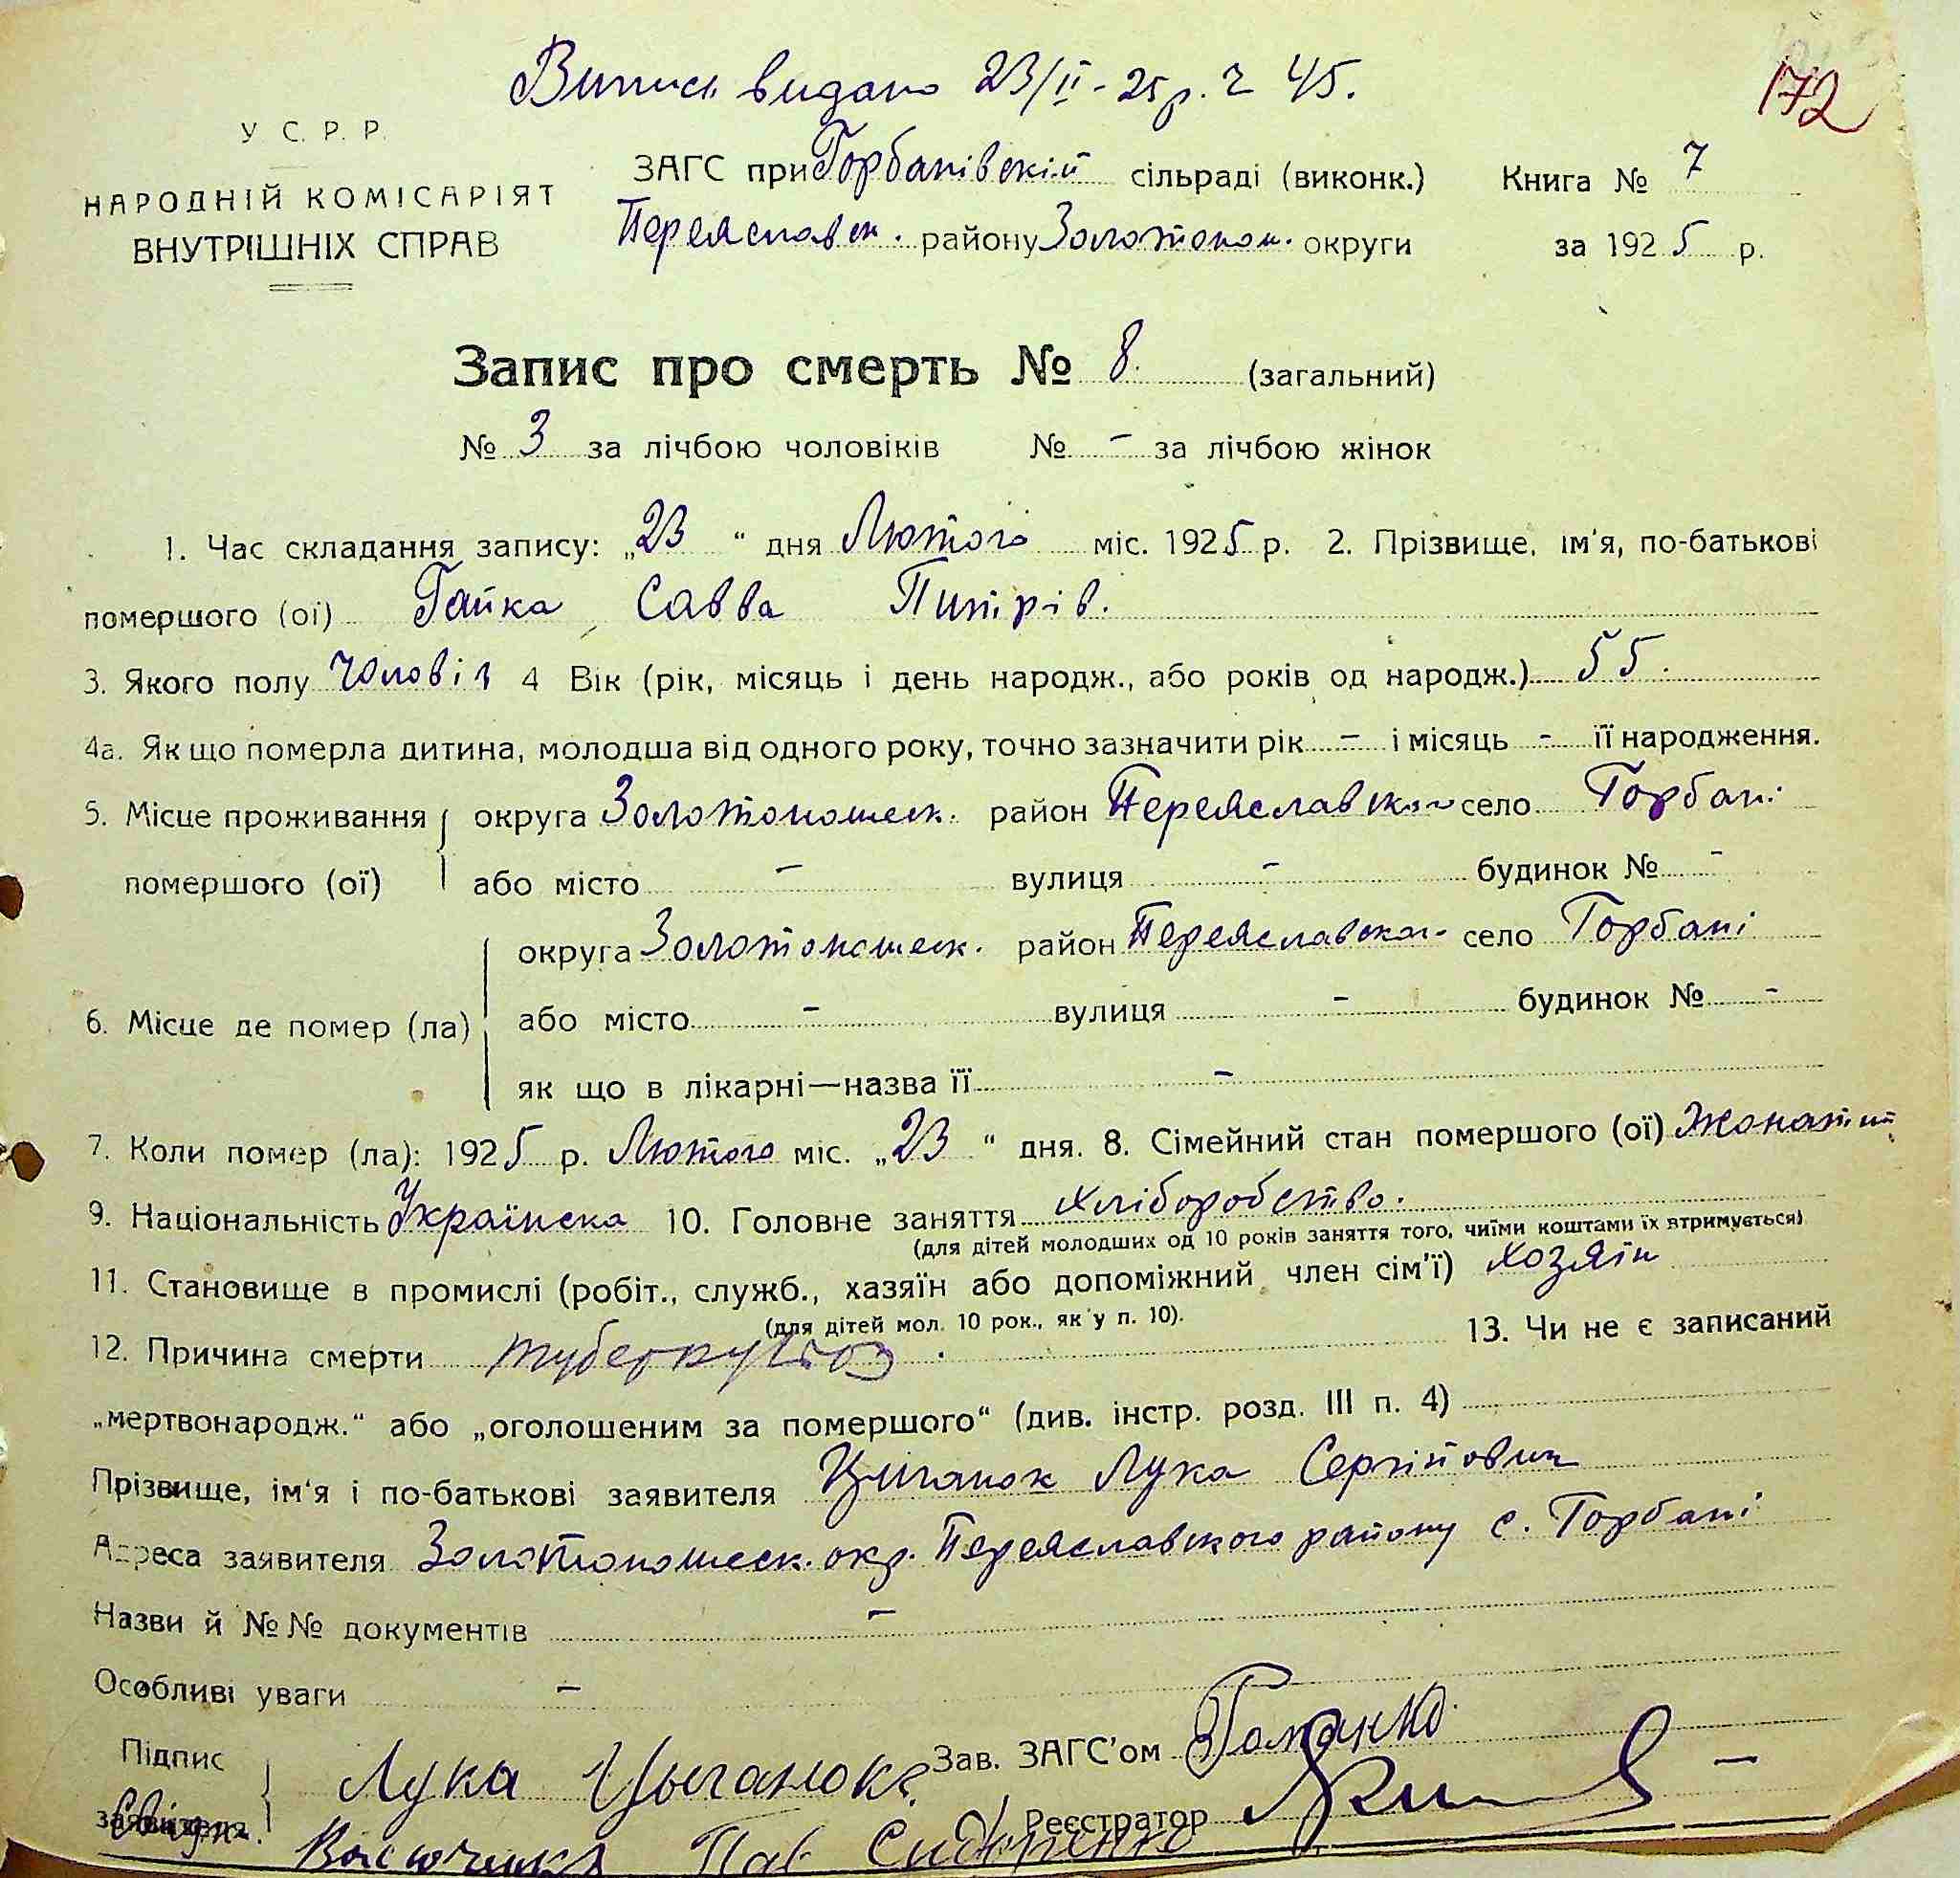 Випись видано 23/II - 25 р. Ч 45.
172
У С. Р. Р.
НАРОДНІЙ КОМІСАРІЯТ
ВНУТРІШНІХ СПРАВ
ЗАГС при Горбанівскій сільраді (виконк.)
Переяславск. району Золотонош. округи
Книга № 7
за 1925 р.
Запис про смерть № 8. (загальний)
№ 3 за лічбою чоловіків № - за лічбою жінок
1. Час складання запису: „23 “ дня Лютого міс. 1925 р. 2. Прізвище, ім'я, по-батькові
помершого (ої) Гайка Савва Питрів.
3. Якого полу Чоловіч 4 Вік (рік, місяць і день народж., або років од народж.) 55.
4а. Як що померла дитина, молодша від одного року, точно зазначити рік - і місяць - її народження.
5. Місце проживання округа Золотоношеск. район Переяславск. село Горбані
помершого (ої) або місто - вулиця - будинок № -
округа Золотоношеск. район Переяславског. село Горбані
6. Місце де помер (ла) або місто - вулиця - будинок № -
як що в лікарні—назва її -
7. Коли помер (ла): 1925 р. Лютого міс. „23 “ дня. 8. Сімейний стан помершого (ої) Жонатий
9. Національність Українска 10. Головне заняття хліборобство.
(для дітей молодших од 10 років заняття того, чиїми коштами їх втримується)
11. Становище в промислі (робіт., служб., хазяїн або допоміжний член сім'ї) хозяїн
(для дітей мол. 10 рок., як у п. 10).
12. Причина смерти туберкульоз. 13. Чи не є записаний
„мертвонародж.“ або „оголошеним за помершого“ (див. інстр. розд. III п. 4)
Прізвище, ім'я і по-батькові заявителя Циганок Лука Сергійович
Адреса заявителя Золотоношеск. окр. Переяславского району с. Горбані
Назви й №№ документів -
Особливі уваги -
Підпис Лука Цыганок Зав. ЗАГС'ом
заявителя Реєстратор
Пав Сидоренко